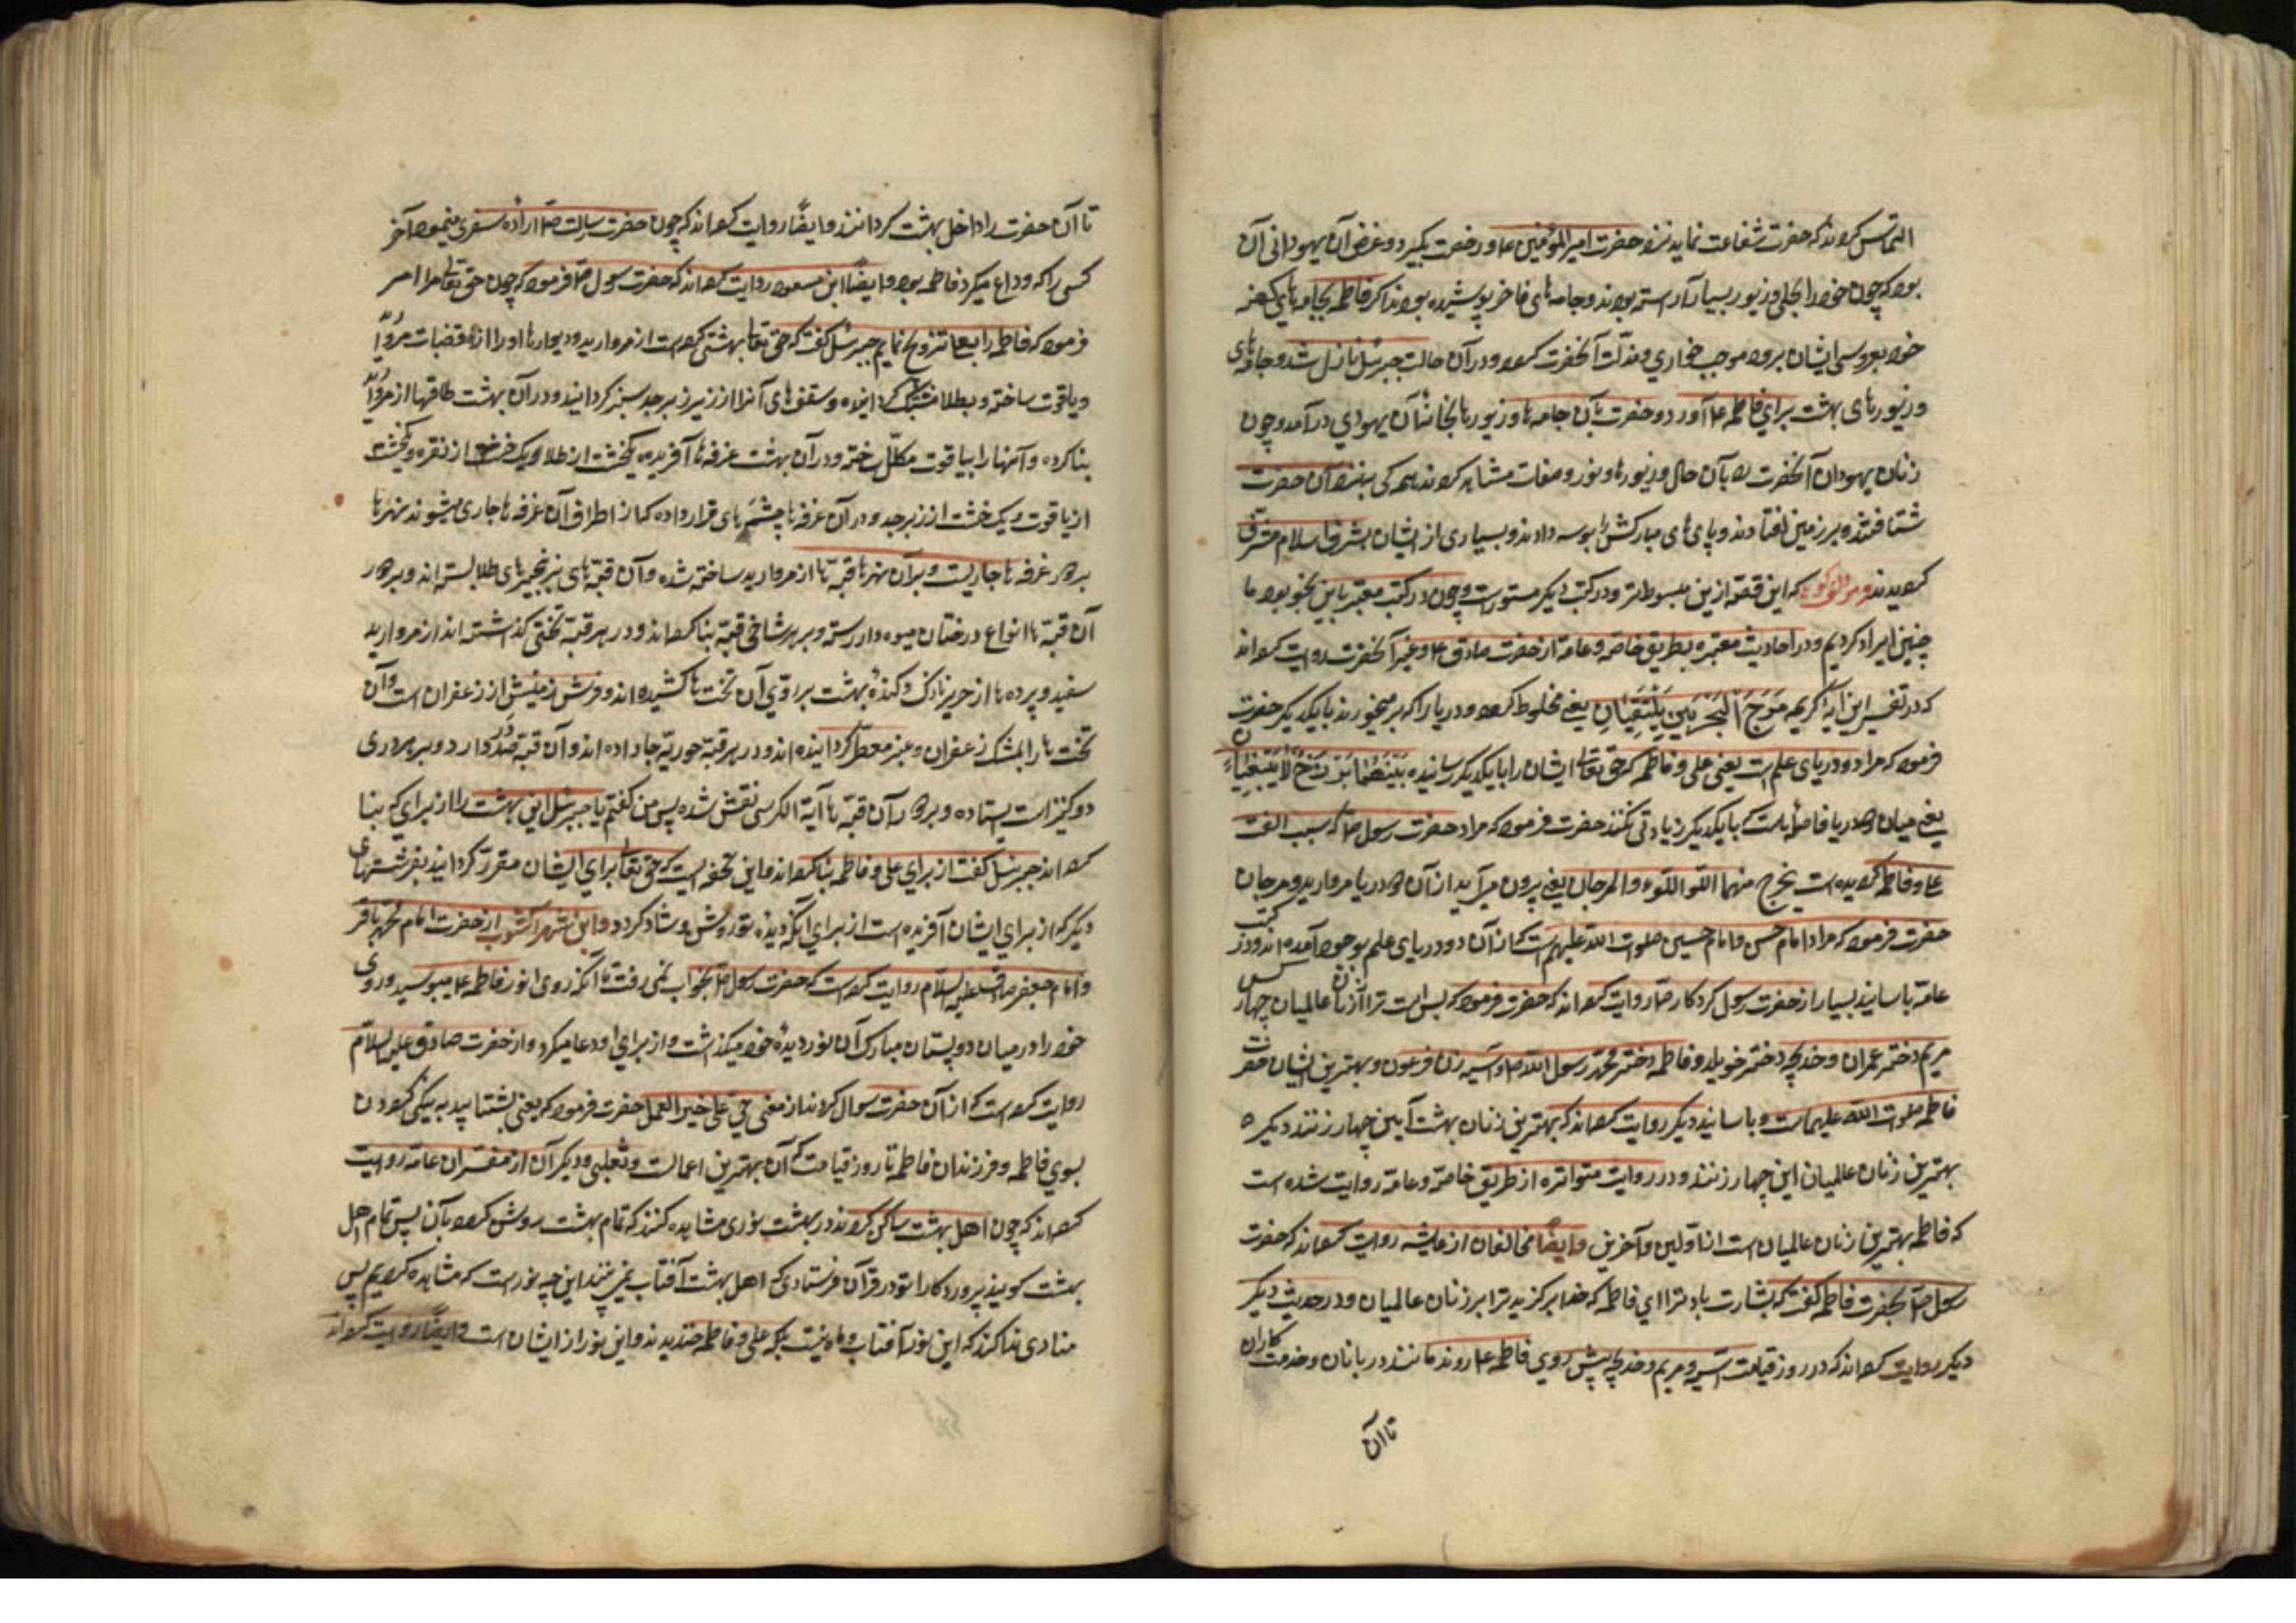 التماس کردند که حضرت شفاعت نماید نزد حضرت امیر المؤمنین ع و رخصت بگیرد و غرض آن یهودانی آن
بود که چون خود را بحلی و زیور بسیار آراسته بودند و جامه های فاخر پوشیده بودند اکر فاطمه بجامه های کهنه
خود بعروسی ایشان برود موجب خواري و مذلت آنحضرت کردد و در آن حالت جبرئیل نازل شد و جامه های
و زیورهای بهشت برای فاطمه ع آورد و حضرت بآن جامه ها و زیورها بخانهٔ آن یهودي درآمد و چون
زنان یهودان آنحضرت را بآن حال و زیورها و نور و صفات مشاهده کردند همه کی بنزد آن حضرت
شتافتند و بر زمین افتادند و پای های مبارکش را بوسه دادند و بسیاری از ایشان بشرف اسلام مشرف
کردیدند و مولف کوید که این قصه ازین مبسوط تر و در کتب دیکر مستور است و چون در کتب معتبر باین نحو بود ما
چنین ایراد کردیم و در احادیث معتبره بطریق خاصه و عامه از حضرت صادق ع و غیر آنحضرت روایت کرده اند
که در تفسیر این آیهٔ کریمه مَرَجَ الْبَحْرَیْنِ یَلْتَقِیَانِ یعنی مخلوط کرد دو دریا را که بر میخورند با یکدیکر حضرت
فرمود که مراد دو دریای علم است یعنی علی و فاطمه که حق تعالی ایشان را با یکدیکر رسانیده بَیْنَهُمَا بَرْزَخٌ لَا یَبْغِیَانِ
یعنی میان دو دریا فاصله است که با یکدیکر زیادتی نکنند حضرت فرمود که مراد حضرت رسول ص که سبب الفت
علی و فاطمه کردیده است یخرج منهما اللؤلؤ والمرجان یعنی بیرون می آید از آن دو دریا مروارید و مرجان
حضرت فرمود که مراد امام حسن و امام حسین صلوات الله علیهم است که از آن دو دریای علم بوجود آمده اند و در کتب
عامه باسانید بسیار از حضرت رسول کردکار ص روایت کرده اند که حضرت فرمود که بس است ترا از زنان عالمیان چهار کس
مریم دختر عمران و خدیجه دختر خویلد و فاطمه دختر محمد رسول الله ص و آسیه زن فرعون و بهترین ایشان حضرت
فاطمه صلوات الله علیهماست و باسانید دیکر روایت کرده اند که بهترین زنان بهشت این چهار زنند دیکر
بهترین زنان عالمیان این چهار زنند و در روایت متواتره از طریق خاصه و عامه روایت شده است
که فاطمه بهترین زنان عالمیان است از اولین و آخرین وایضاً مخالفان از عایشه روایت کرده اند که حضرت
رسول ص بحضرت فاطمه کفت که بشارت باد ترا اي فاطمه که خدا برکزید ترا بر زنان عالمیان و در حدیث دیکر
دیکر روایت کرده اند که در روز قیامت آسیه و مریم و خدیجه پیش روي فاطمه ع روند مانند دربانان و خدمت کاران
تا آن
تا آن حضرت را داخل بهشت کردانند وایضاً روایت کرده اند که چون حضرت رسالت ص ارادهٔ سفری مینمود آخر
کسی را که وداع میکرد فاطمه بود وایضاً ابن مسعود روایت کرده اند که حضرت رسول ص فرمود که چون حق تعالی مرا امر
فرمود که فاطمه را بعلی تزویج نمایم جبرئیل کفت که حق تعالی بهشتی کرده است از مروارید و دیوارها او را از قضبات مروارید
و یاقوت ساخته و بطلا مشبک کردانیده و سقف های آنرا از زبرجد سبز کردانید و در آن بهشت طاقها از مروارید
بنا کرده و آنها را بیاقوت مکلل ساخته و در آن بهشت غرفه ها آفریده یکخشت از طلا و یک خشت از نقره و یکخشت
از یاقوت و یک خشت از زبرجد و در آن غرفه ها چشمه های قرار داده که از اطراف آن غرفه ها جاری میشوند نهرها
بر دور غرفه ها جاریست و بر آن نهرها قبه ها از مروارید ساخته شده و آن قبه های بزنجیرهای طلا بسته اند و بر دور
آن قبه ها انواع درختان میوه دار رسته و بر هر شاخی قبه بنا کرده اند و در هر قبه تختی کذاشته اند از مروارید
سفید و پرده ها از حریر نازک و کندهٔ بهشت بر روي آن تخت ها کشیده اند و فرش زمینش از زعفران است و آن
تخت ها را بمشک و زعفران و عنبر معطر کردانیده اند و در هر قبه حوریه جا داده اند و آن قبه صد در دارد و بر هر دری
دو کنیز است ایستاده و بر دور آن قبه ها آیة الکرسی نقش شده پس من کفتم یا جبرئیل این بهشت را از برای که بنا
کرده اند جبرئیل کفت از برای علی و فاطمه بنا کرده اند و این تحفه ایست که حق تعالی برای ایشان مقرر کردانید بغیر بهشتهای
دیکر که از برای ایشان آفریده است از برای آنکه دیدهٔ تو روشن و شاد کردد و ابن شهر آشوب از حضرت امام محمد باقر
و امام جعفر صادق علیه السلام روایت کرده است که حضرت رسول ص بخواب نمی رفت تا آنکه روی انور فاطمه ع میبوسید و روی
خود را در میان دو پستان مبارک آن نور دیدهٔ خود میکذاشت و از برای او دعا میکرد و از حضرت صادق علیه السلام
روایت کرده است که از آن حضرت سوال کردند از معنی حی علی خیر العمل حضرت فرمود که یعنی بشتابید به نیکی کردن
بسوی فاطمه و فرزندان فاطمه تا روز قیامت که آن بهترین اعمالست و ثعلبی و دیکر آن از مفسران عامه روایت
کرده اند که چون اهل بهشت ساکن کردند در بهشت نوری مشاهده کنند که تمام بهشت روشن کردد بآن پس تمام اهل
بهشت کویند پروردکارا تو در قرآن فرستادی که اهل بهشت آفتاب نمی بینند این چه نور است که مشاهده کردیم پس
منادی ندا کند که این نور آفتاب و ماه نیست بلکه علی و فاطمه خندیدند و این نور از ایشان است وایضاً روایت کرده اند